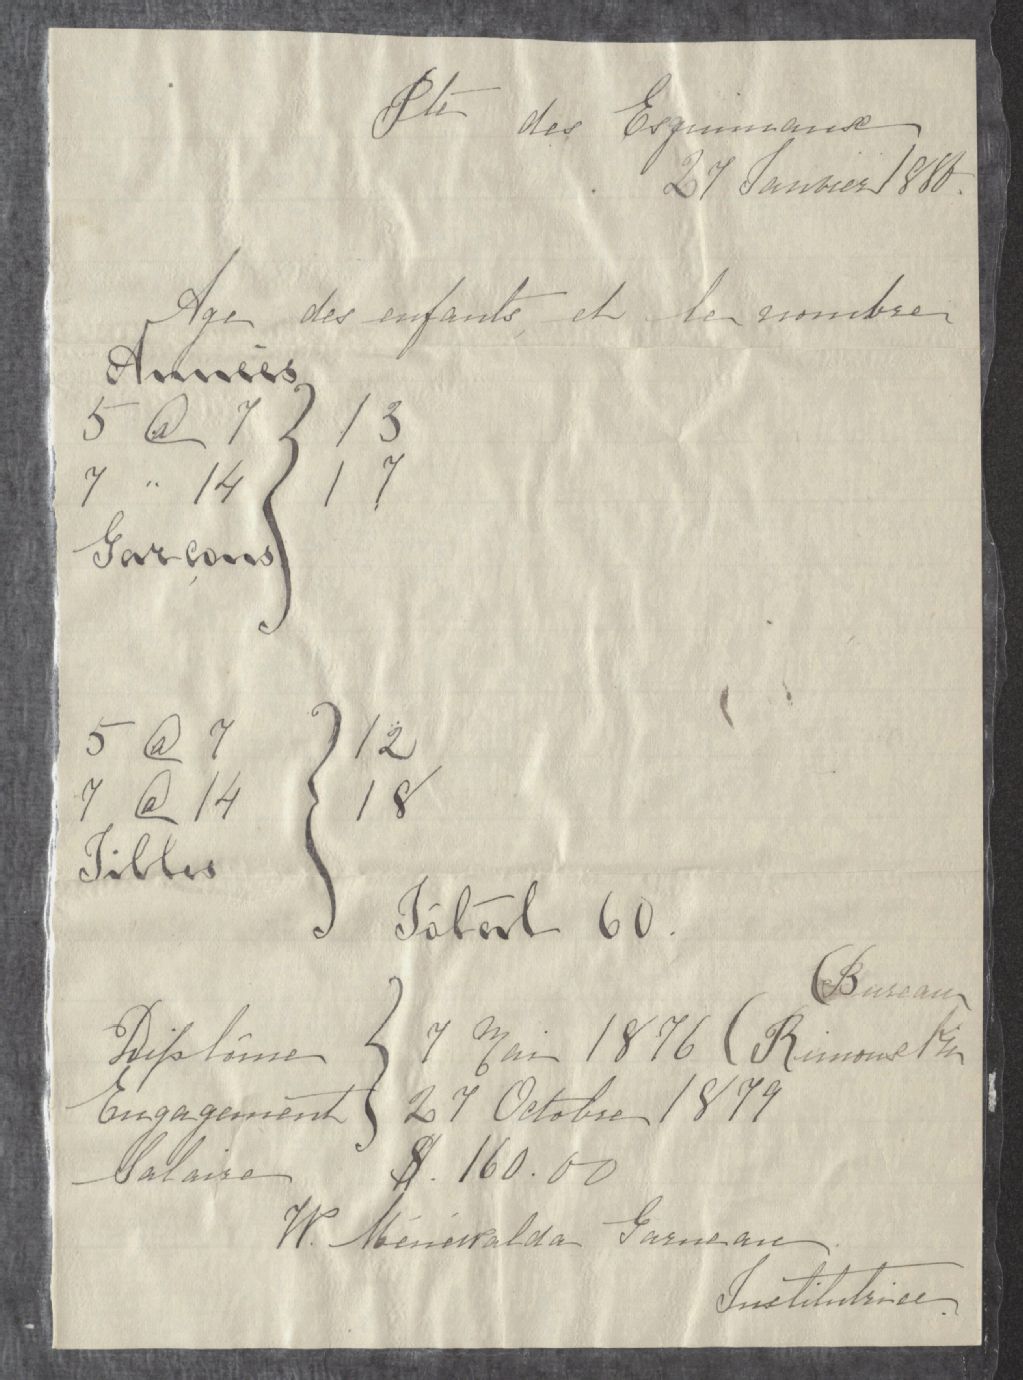 Pte des Esquimaux
27 Janvier 1880.
Age des enfants et le nombre
Années
5 @ 7 } 13
7 " 14 } 17
Garçons
5 @ 7 } 12
7 @ 14 } 18
Filles
Total 60.
(Bureau
Diplôme } 7 Mai 1876 (Rimouski
Engagement } 27 Octobre 1879
Salaire $. 160.00
W. Ménévalda Garneau
Institutrice.